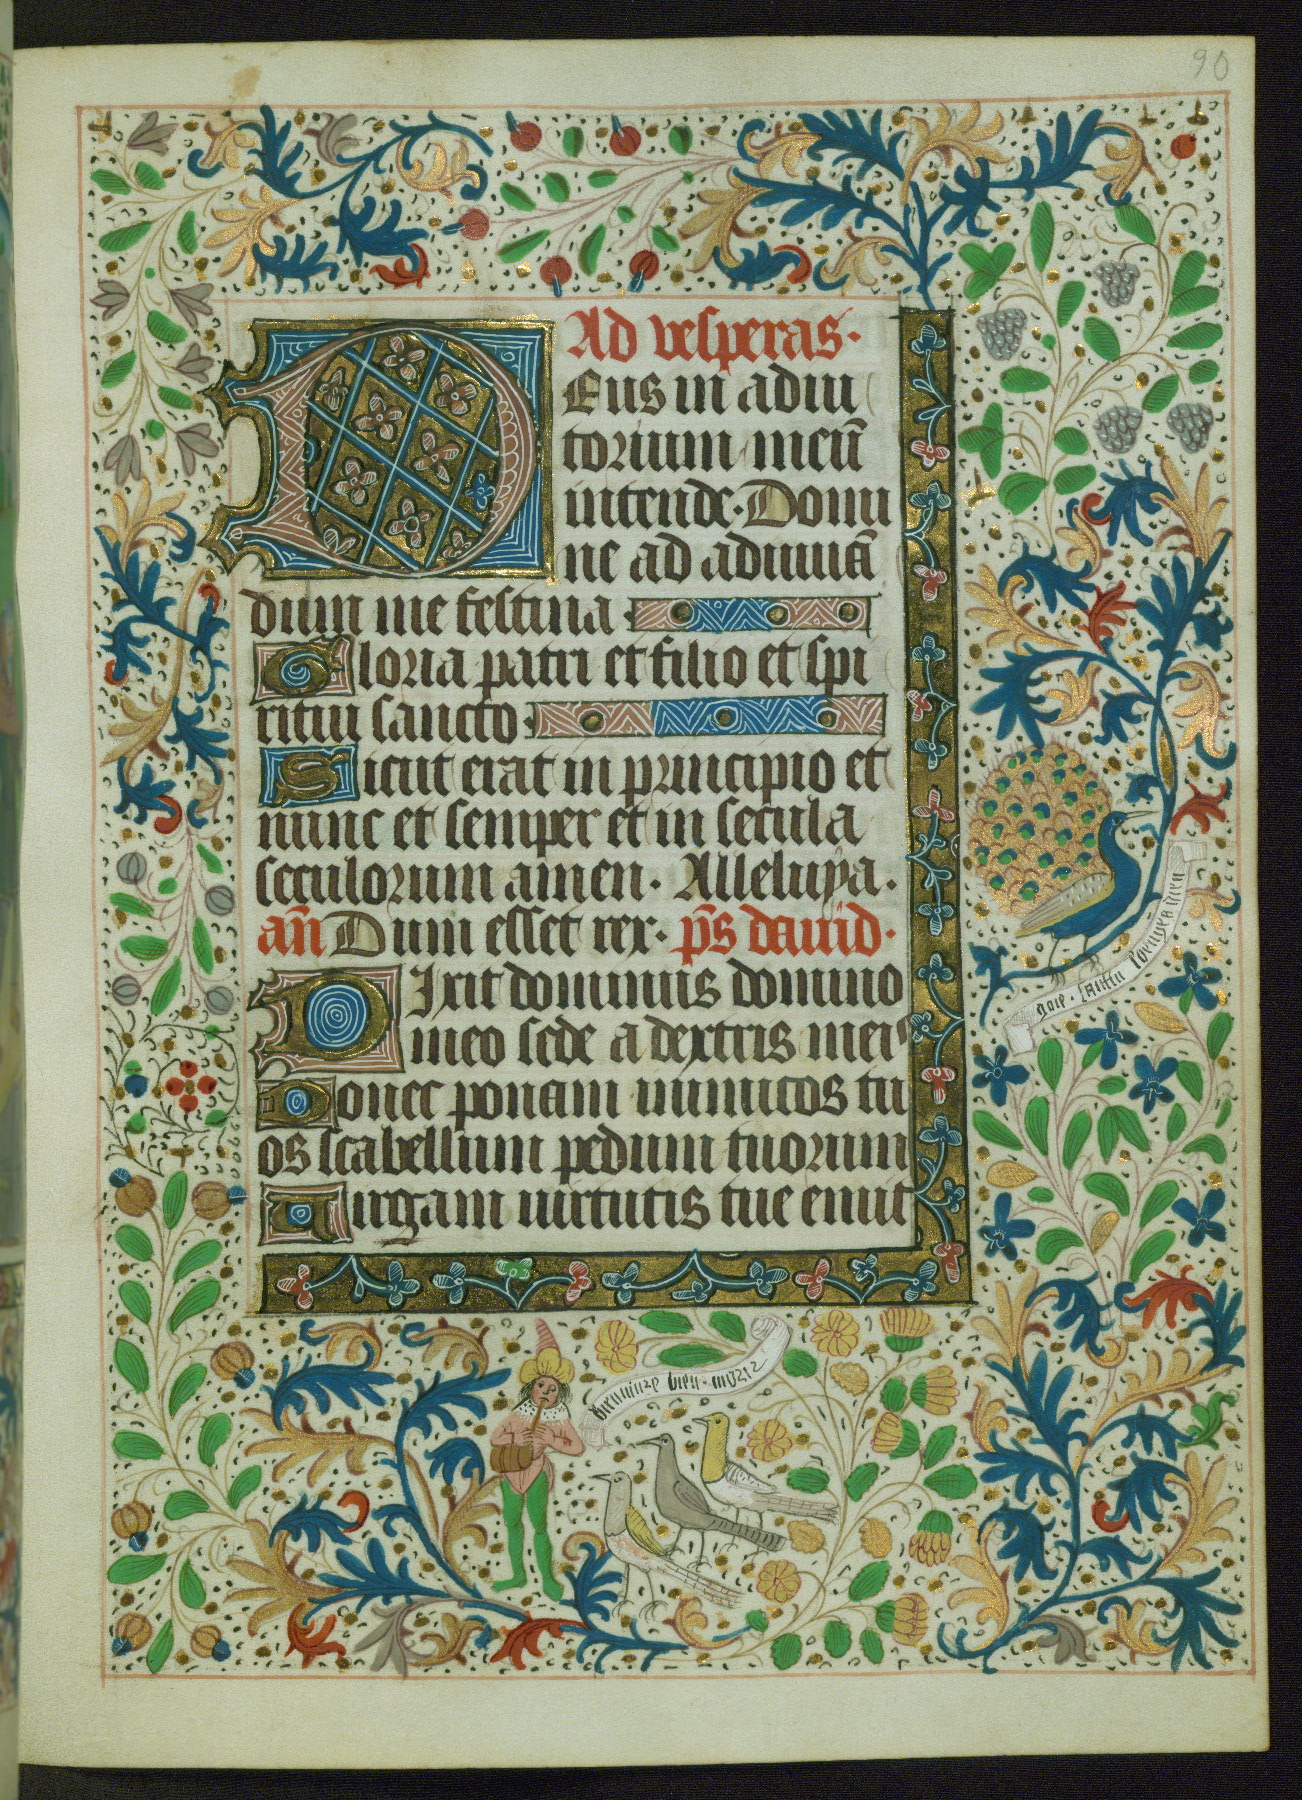 90
Ad vesperas·
Eus in adiu
torium meū
intende· Domi
ne ad adiuuā
dum me festina
Gloria patri et filio et spi
ritui sancto
Sicut erat in principio et
nunc et semper et in secula
seculorum amen· Alleluya·
an̄ Dum esset rex· p̄s dauid·
Dixit dominus domino
meo sede a dextris meis
Donec ponam inimicos tu
os scabellum pedum tuorum
Uirgam uirtutis tue emit